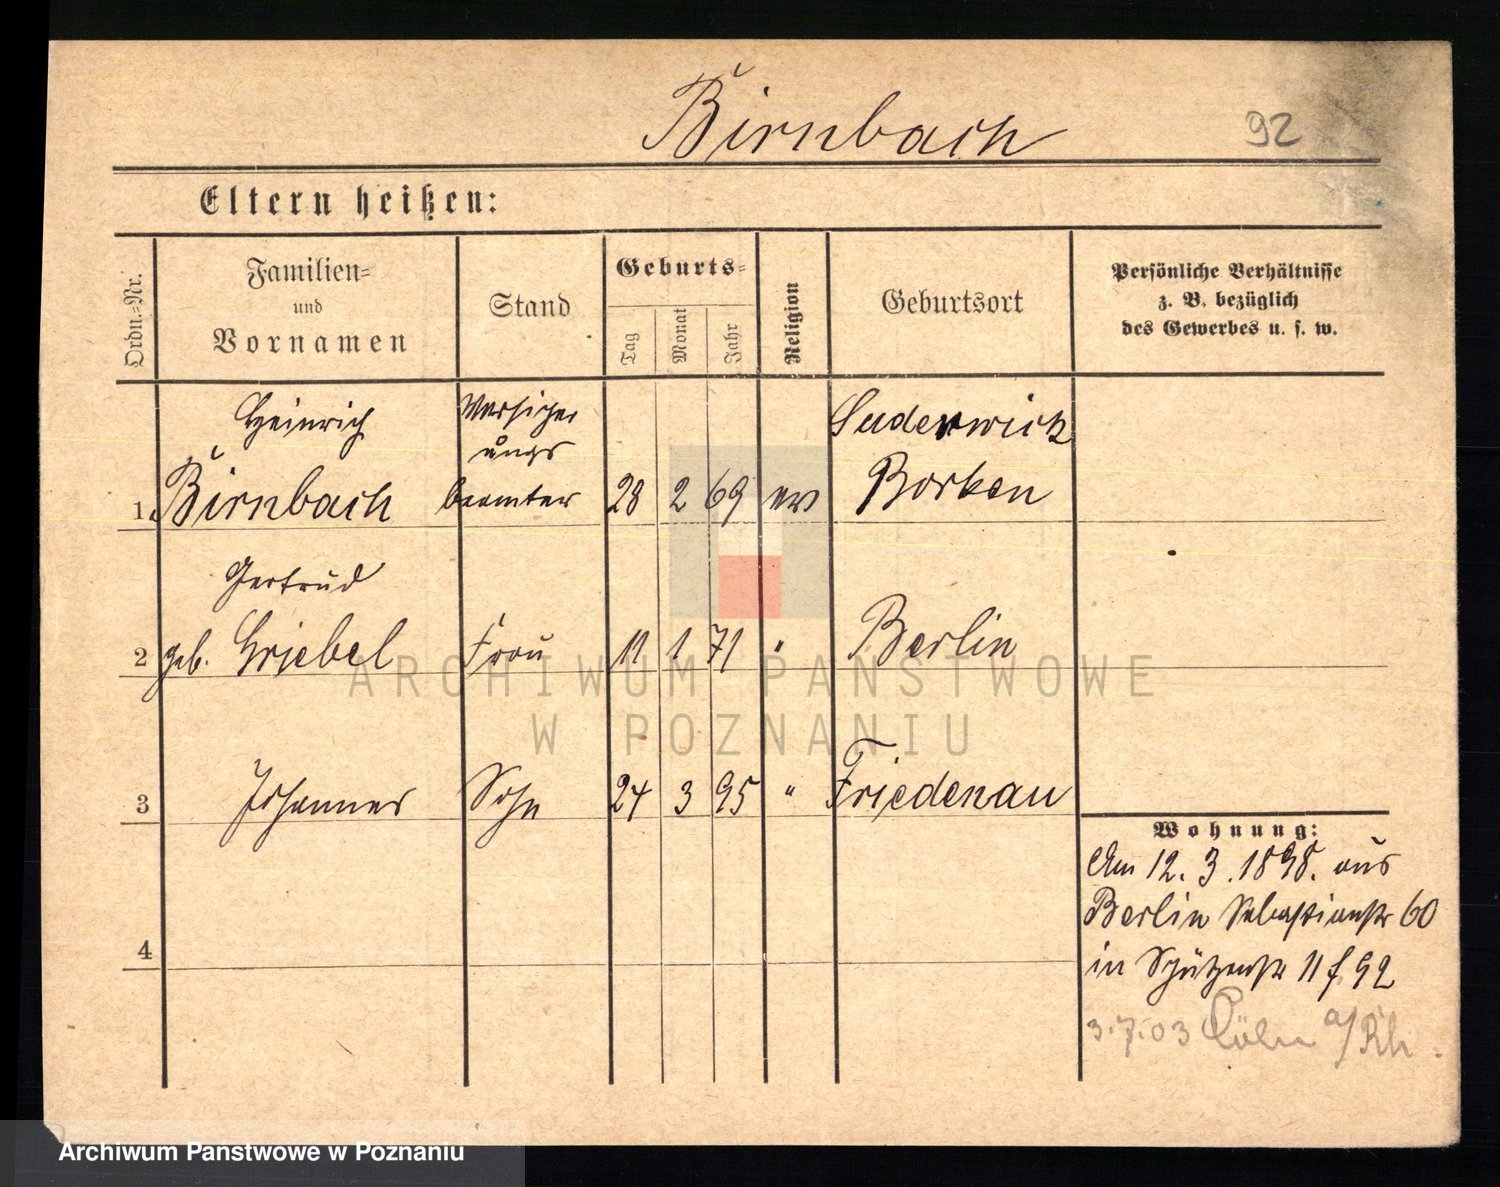 Birnbach 92
Eltern heißen:
Ordn.-Nr.
Familien-
und
Vornamen
Stand
Geburts-
Tag
Monat
Jahr
Religion
Geburtsort
Persönliche Verhältnisse
z. B. bezüglich
des Gewerbes u. s. w.
Heinrich Versicher Suderwick
ungs
1. Birnbach beamter 28 2 69 ev Borken
Gertrud
2 geb. Griebel Frau 11 1 71 " Berlin
3 Johannes Sohn 24 3 95 " Friedenau
Wohnung:
Am 12. 3. 1898. aus
Berlin Sebastianstr 60
4
in Schützenstr 11 f. 92
3.7.03 Cöln a/Rh.
ARCHIWUM PAŃSTWOWE
W POZNANIU
Archiwum Państwowe w Poznaniu